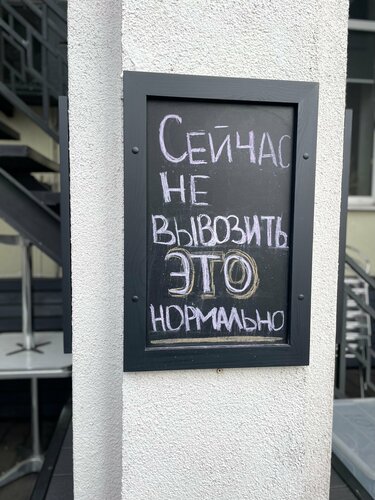 Сейчас
не
вывозить
это
нормально